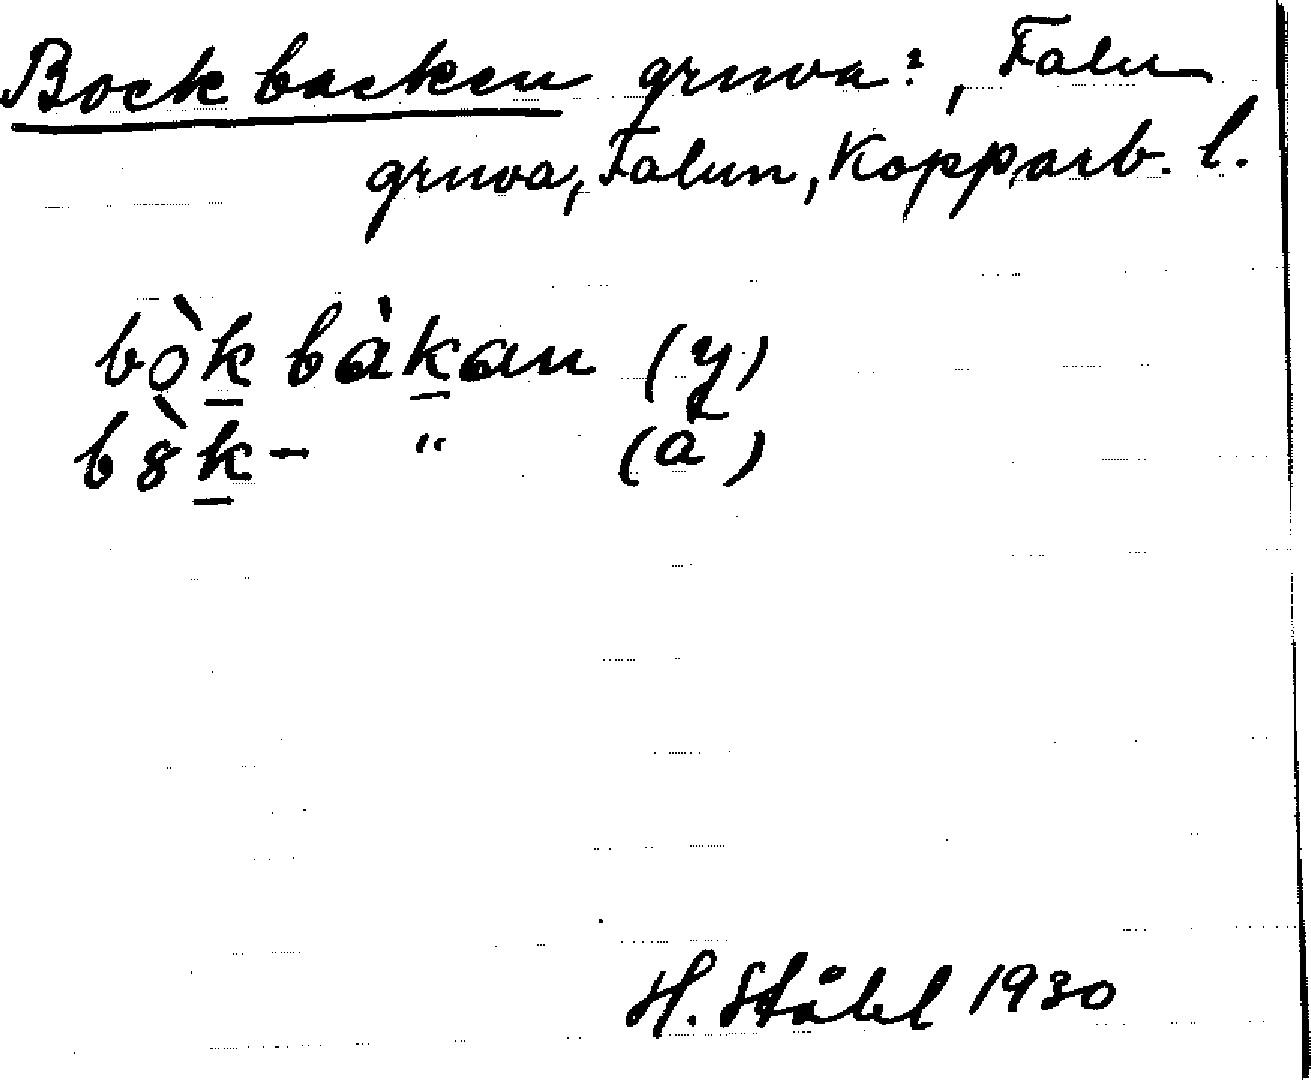 Bockbacken gruva?, Falu
gruva, Falun, Kopparb. l.
bòk bàkan (y)
b8̀k- " (ä)
H. Ståhl 1930